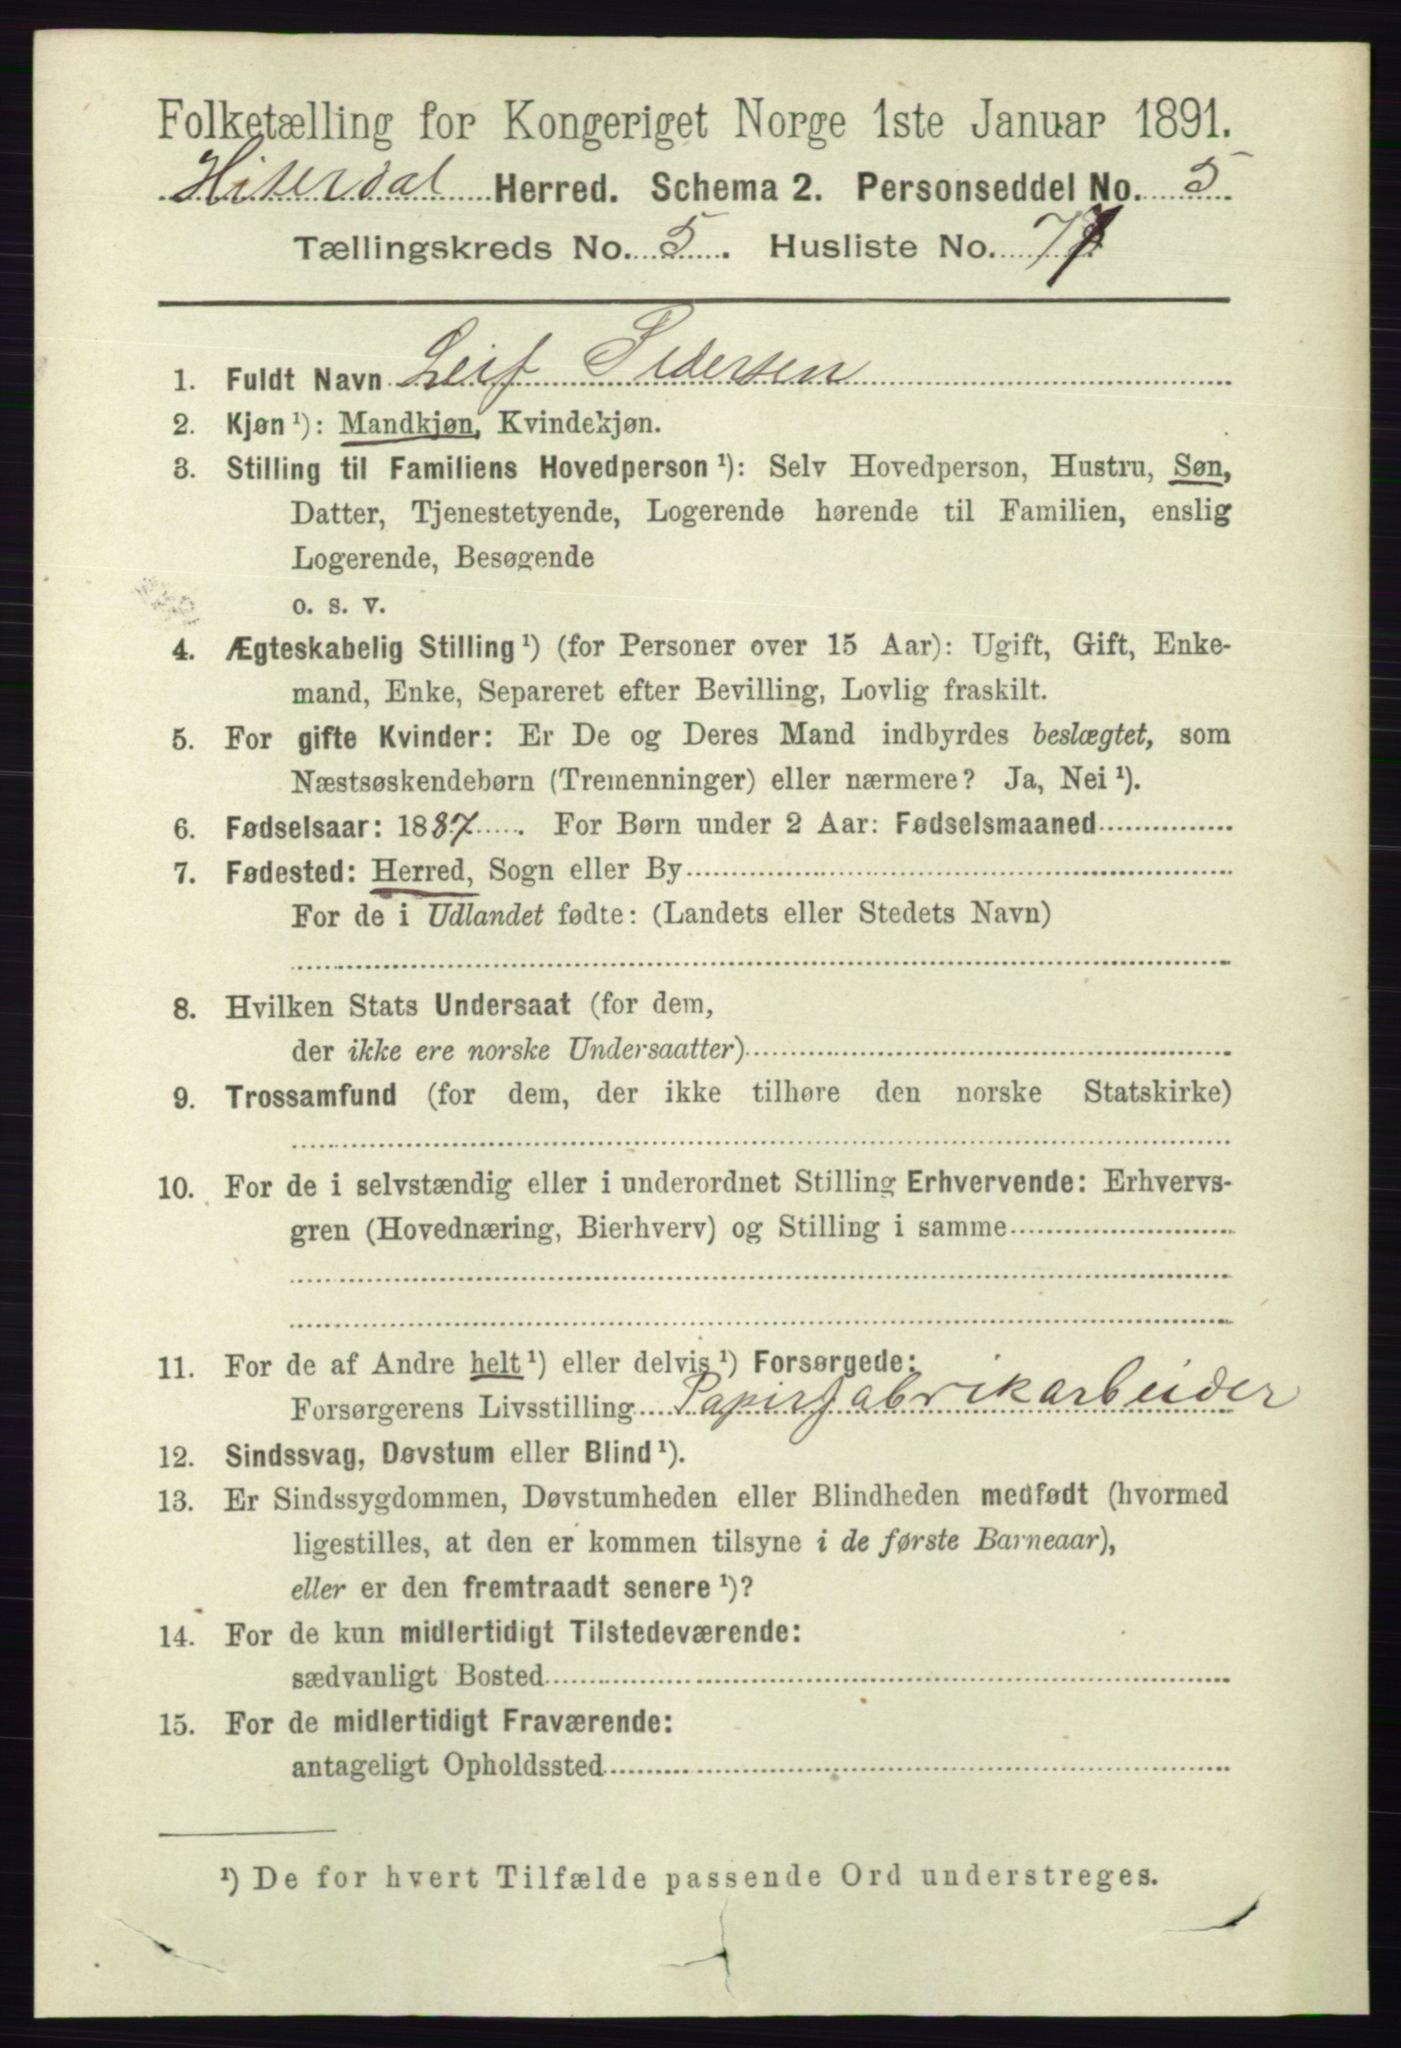 Folketælling for Kongeriget Norge 1ste Januar 1891.
Hiterdal Herred. Schema 2. Personseddel No. 5
Tællingskreds No. 5. Husliste No. 77
1. Fuldt Navn Leif Pedersen
2. Kjøn ¹): Mandkjøn, Kvindekjøn.
3. Stilling til Familiens Hovedperson ¹): Selv Hovedperson, Hustru, Søn,
Datter, Tjenestetyende, Logerende hørende til Familien, enslig
Logerende, Besøgende
o. s. v.
4. Ægteskabelig Stilling ¹) (for Personer over 15 Aar): Ugift, Gift, Enke-
mand, Enke, Separeret efter Bevilling, Lovlig fraskilt.
5. For gifte Kvinder: Er De og Deres Mand indbyrdes beslægtet, som
Næstsøskendebørn (Tremenninger) eller nærmere? Ja, Nei ¹).
6. Fødselsaar: 1887. For Børn under 2 Aar: Fødselsmaaned
7. Fødested: Herred, Sogn eller By
For de i Udlandet fødte: (Landets eller Stedets Navn)
8. Hvilken Stats Undersaat (for dem,
der ikke ere norske Undersaatter)
9. Trossamfund (for dem, der ikke tilhøre den norske Statskirke)
10. For de i selvstændig eller i underordnet Stilling Erhvervende: Erhvervs-
gren (Hovednæring, Bierhverv) og Stilling i samme
11. For de af Andre helt ¹) eller delvis ¹) Forsørgede:
Forsørgerens Livsstilling Papirfabrikarbeider
12. Sindssvag, Døvstum eller Blind ¹).
13. Er Sindssygdommen, Døvstumheden eller Blindheden medfødt (hvormed
ligestilles, at den er kommen tilsyne i de første Barneaar),
eller er den fremtraadt senere ¹)?
14. For de kun midlertidigt Tilstedeværende:
sædvanligt Bosted
15. For de midlertidigt Fraværende:
antageligt Opholdssted
¹) De for hvert Tilfælde passende Ord understreges.